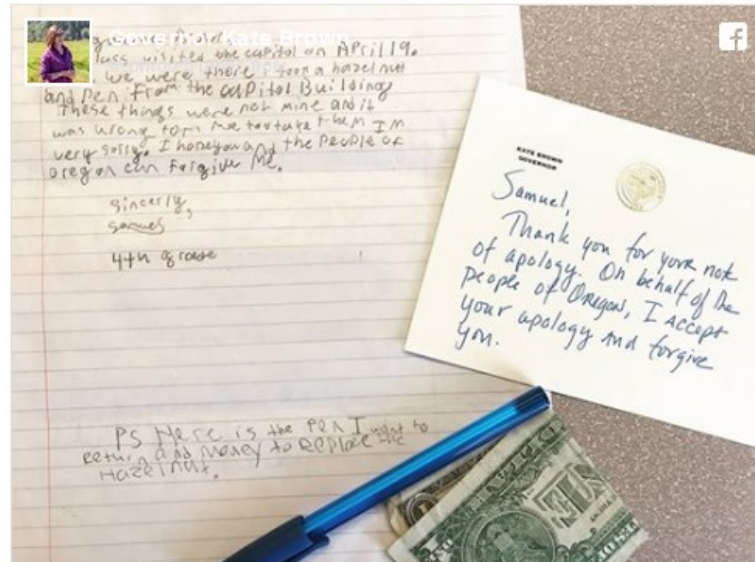 Governor Kate Brown
class visited the capitol on April 19.
we were there I took a hazelnut
and Pen From the capitol Building
These things were not mine and it
was wrong for me to take them I'm
very sorry. I hope you and the people of
oregon can forgive me.
sincerly,
samuel
4th grade
PS Here is the Pen I want to
return and money to Replace the
Hazelnut.
KATE BROWN
GOVERNOR
Samuel,
Thank you for your note
of apology. On behalf of the
people of Oregon, I accept
your apology and forgive
you.
ONE